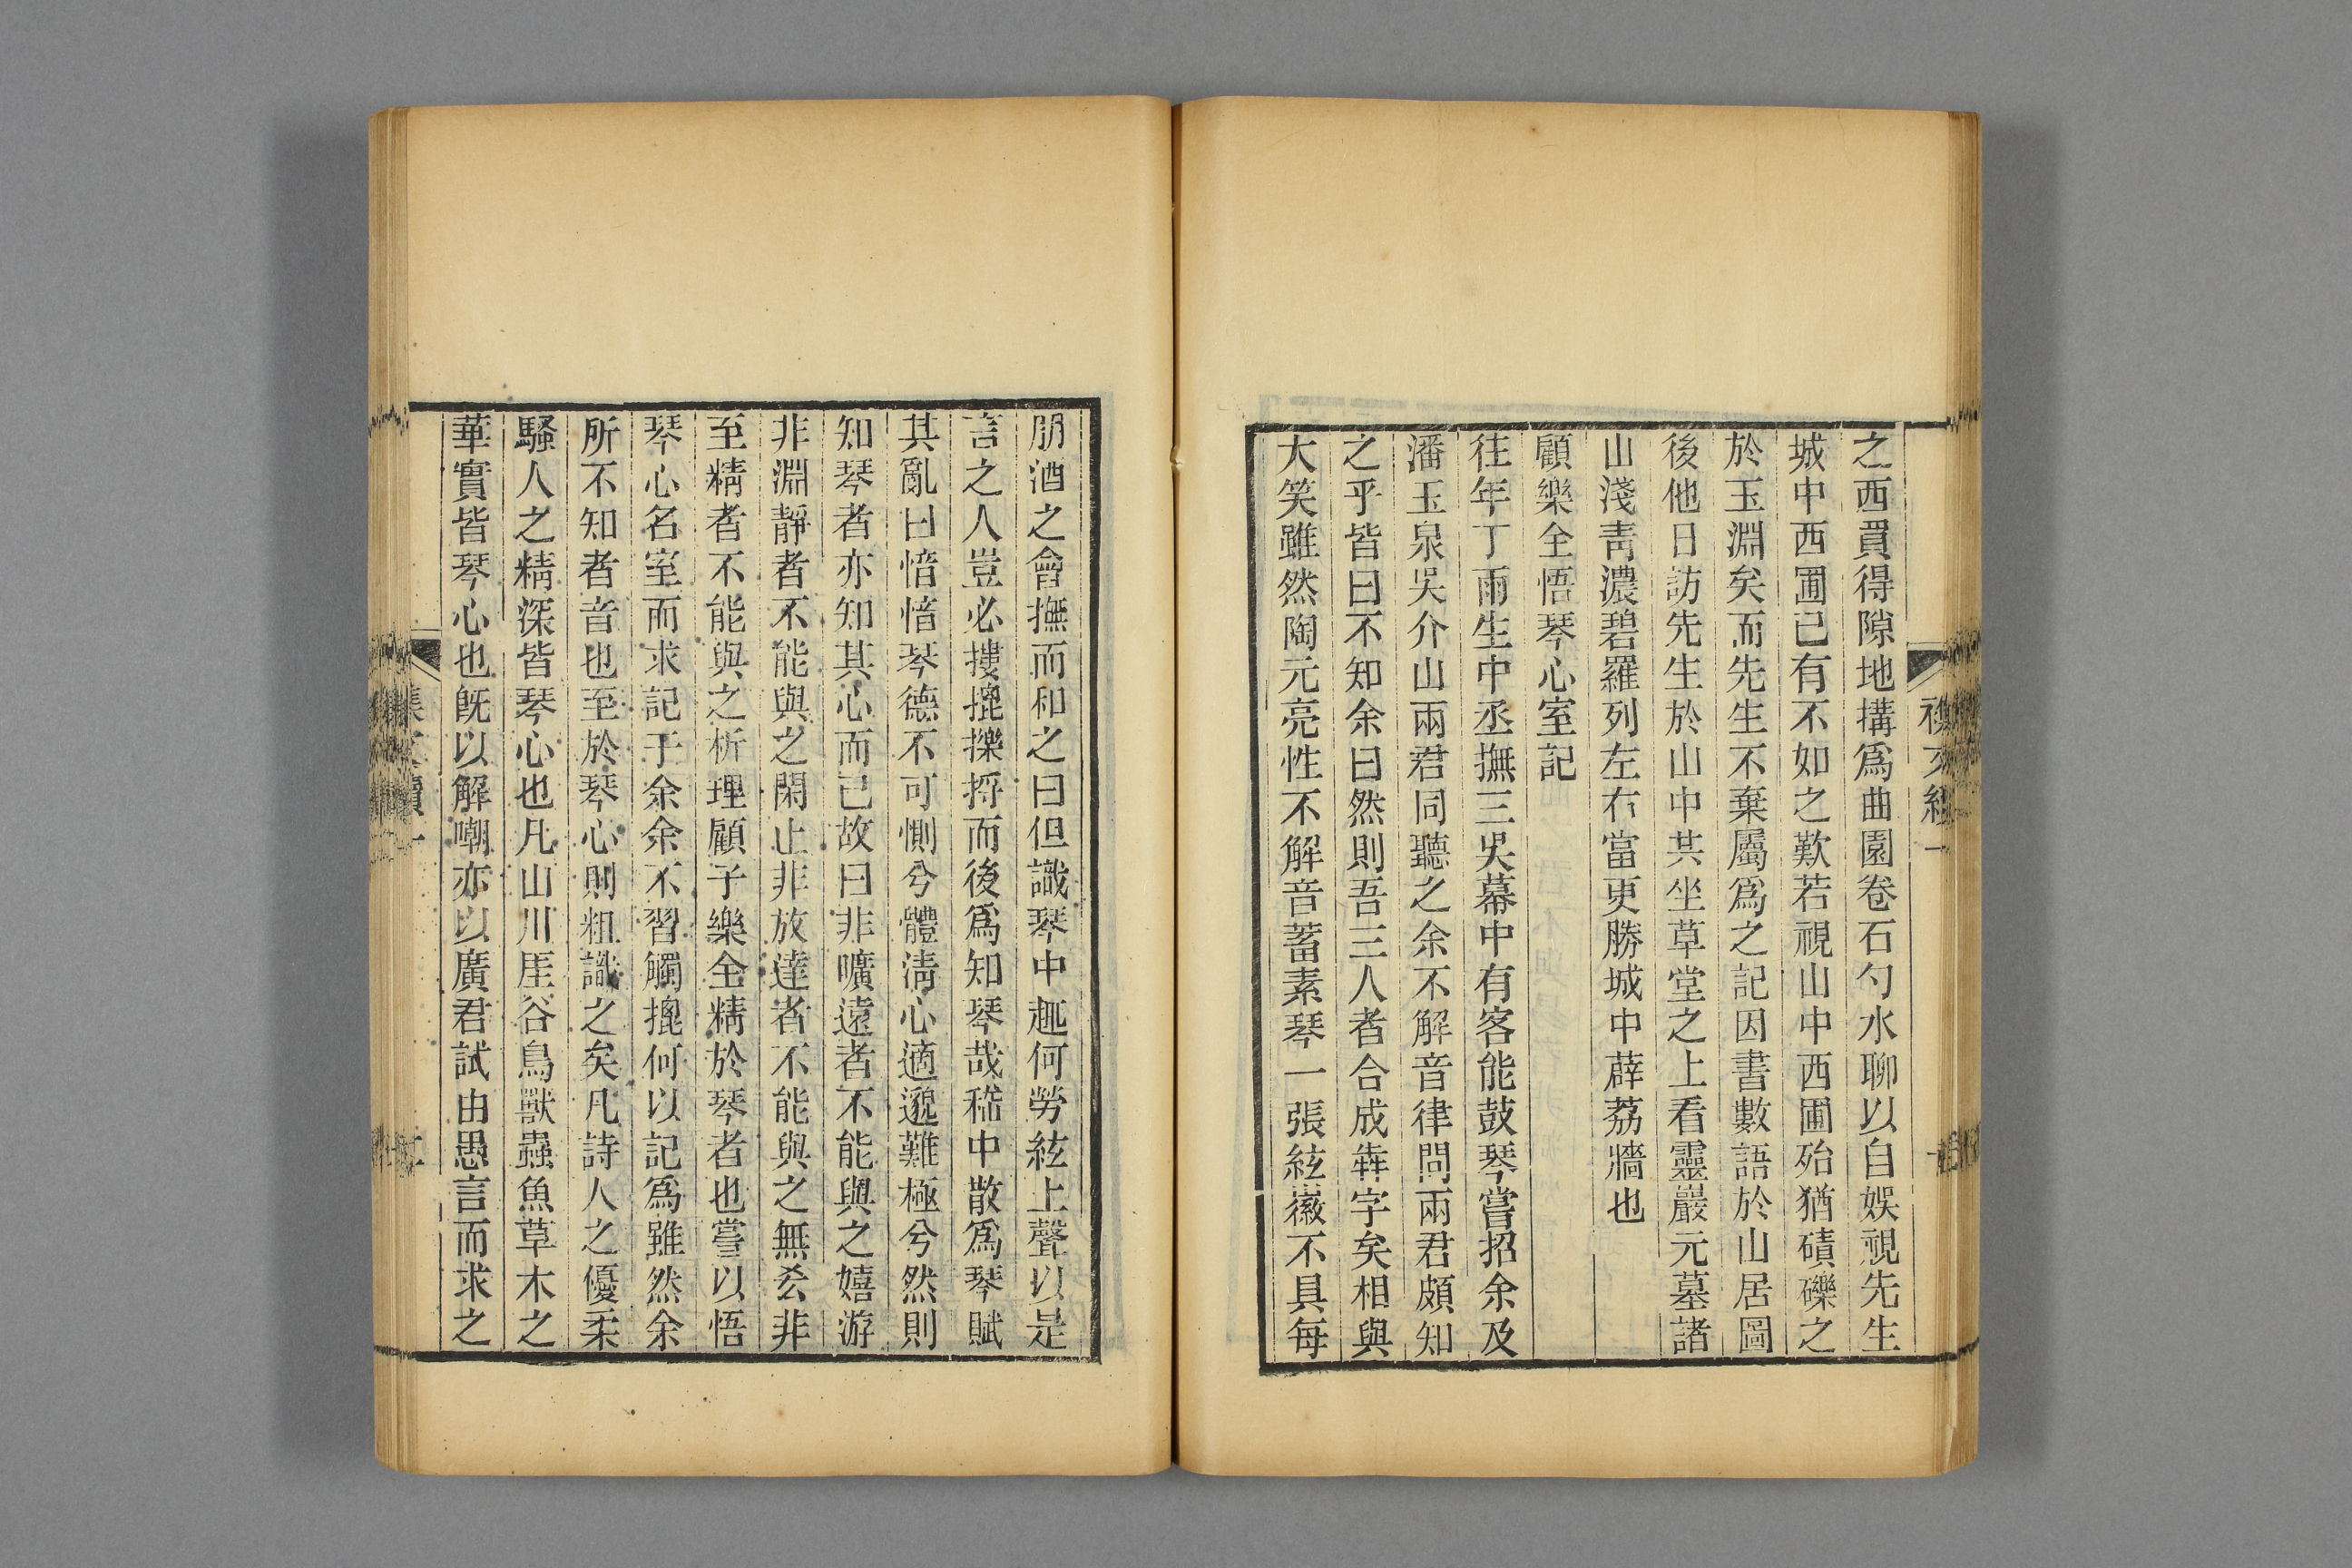 之西買得隙地搆爲曲園卷石勺水聊以自娛視先生
城中西圃已有不如之歎若視山中西圃殆猶磧礫之
於玉淵矣而先生不棄屬爲之記因書數語於山居圖
後他日訪先生於山中共坐草堂之上看靈巖元墓諸
山淺靑濃碧羅列左右當更勝城中薜荔牆也
顧樂全悟琴心室記
往年丁雨生中丞撫三吳幕中有客能鼓琴嘗招余及
潘玉泉吳介山兩君同聽之余不解音律問兩君頗知
之乎皆曰不知余曰然則吾三人者合成犇字矣相與
大笑雖然陶元亮性不解音蓄素琴一張絃徽不具每
朋酒之會撫而和之曰但識琴中趣何勞絃上聲以是
言之人豈必摟㧙擽捋而後爲知琴哉嵇中散爲琴賦
其亂曰愔愔琴德不可惻兮體淸心適邈難極兮然則
知琴者亦知其心而已故曰非曠遠者不能與之嬉游
非淵靜者不能與之閑止非放達者不能與之無㕕非
至精者不能與之析理顧子樂全精於琴者也嘗以悟
琴心名室而求記于余余不習觸㧙何以記爲雖然余
所不知者音也至於琴心則粗識之矣凡詩人之優柔
騷人之精深皆琴心也凡山川厓谷鳥獸蟲魚草木之
華實皆琴心也旣以解嘲亦以廣君試由愚言而求之